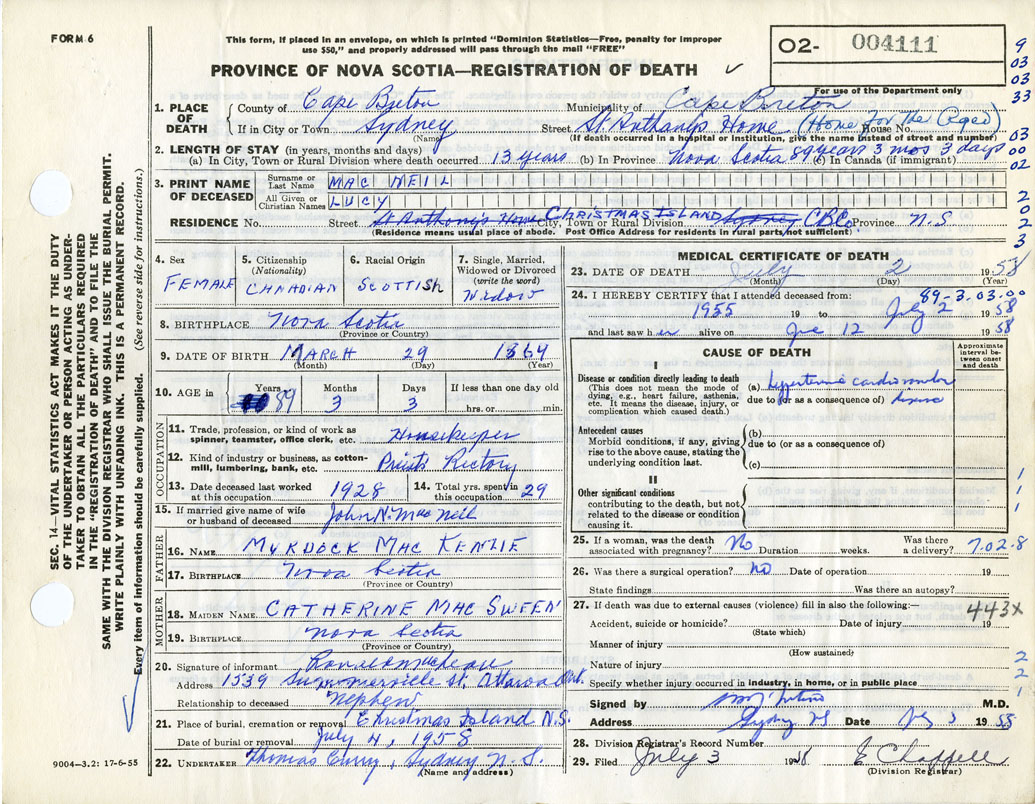 FORM 6
This form, if placed in an envelope, on which is printed "Dominion Statistics—Free, penalty for improper
use $50," and properly addressed will pass through the mail "FREE"
PROVINCE OF NOVA SCOTIA—REGISTRATION OF DEATH
O2- 004111
For use of the Department only
9
03
03
33
03
00
02
2
2
2
3
1. PLACE OF DEATH
County of Cape Breton Municipality of Cape Breton
If in City or Town Sydney Street St Anthony's Home (Home for the Aged) House No.
(Name) (If death occurred in hospital or institution, give the name instead of street and number)
2. LENGTH OF STAY (in years, months and days)
(a) In City, Town or Rural Division where death occurred 13 years (b) In Province Nova Scotia 89 years 3 mos 3 days (c) In Canada (if immigrant)
3. PRINT NAME OF DECEASED
Surname or Last Name MAC NEIL
All Given or Christian Names LUCY
RESIDENCE No. Street St Anthony's Home City, CHRISTMAS ISLAND Town or Rural Division Sydney CB Co. Province N.S
(Residence means usual place of abode. Post Office Address for residents in rural parts not sufficient)
4. Sex FEMALE
5. Citizenship (Nationality) CANADIAN
6. Racial Origin SCOTTISH
7. Single, Married, Widowed or Divorced (write the word) Widow
8. BIRTHPLACE Nova Scotia
(Province or Country)
9. DATE OF BIRTH MARCH 29 1869
(Month) (Day) (Year)
10. AGE in Years 89 Months 3 Days 3 If less than one day old hrs. or min.
OCCUPATION
11. Trade, profession, or kind of work as spinner, teamster, office clerk, etc. Housekeeper
12. Kind of industry or business, as cotton-mill, lumbering, bank, etc. Priests Rectory
13. Date deceased last worked at this occupation 1928
14. Total yrs. spent in this occupation 29
15. If married give name of wife or husband of deceased John N. Mac Neil
FATHER
16. NAME MYRDOCK MAC KENZIE
17. BIRTHPLACE Nova Scotia
(Province or Country)
MOTHER
18. MAIDEN NAME CATHERINE MAC SWEEN
19. BIRTHPLACE Nova Scotia
(Province or Country)
20. Signature of informant
Address 1539 Summerville St. Ottawa Ont.
Relationship to deceased Nephew
21. Place of burial, cremation or removal Christmas Island N.S.
Date of burial or removal July 4, 1958
22. UNDERTAKER Thomas Curry, Sydney N.S.
(Name and address)
9004—3.2: 17-6-55
SEC. 14—VITAL STATISTICS ACT MAKES IT THE DUTY
OF THE UNDERTAKER OR PERSON ACTING AS UNDER-
TAKER TO OBTAIN ALL THE PARTICULARS REQUIRED
IN THE "REGISTRATION OF DEATH" AND TO FILE THE
SAME WITH THE DIVISION REGISTRAR WHO SHALL ISSUE THE BURIAL PERMIT.
WRITE PLAINLY WITH UNFADING INK. THIS IS A PERMANENT RECORD.
Every item of information should be carefully supplied. (See reverse side for instructions.)
MEDICAL CERTIFICATE OF DEATH
23. DATE OF DEATH July 2 1958
(Month) (Day) (Year)
24. I HEREBY CERTIFY that I attended deceased from: 89-3.03.00
1955 19 to July 2 1958
and last saw her alive on June 12 1958
CAUSE OF DEATH
Approximate interval between onset and death
I
Disease or condition directly leading to death
(This does not mean the mode of dying, e.g., heart failure, asthenia, etc. It means the disease, injury, or complication which caused death.)
(a) hypertensive cardiovascular
due to (or as a consequence of) disease
Antecedent causes
Morbid conditions, if any, giving rise to the above cause, stating the underlying condition last.
(b)
due to (or as a consequence of)
(c)
II
Other significant conditions
contributing to the death, but not related to the disease or condition causing it.
1
1
1
25. If a woman, was the death associated with pregnancy? No Duration weeks. Was there a delivery? 7.02.8
26. Was there a surgical operation? No Date of operation 19
State findings Was there an autopsy?
27. If death was due to external causes (violence) fill in also the following:— 443X
Accident, suicide or homicide? Date of injury 19
(State which)
Manner of injury
(How sustained)
Nature of injury
Specify whether injury occurred in industry, in home, or in public place
2
2
1
Signed by M.D.
Address Sydney NS Date July 3 1958
28. Division Registrar's Record Number
29. Filed July 3 1958 E Chappell
(Division Registrar)